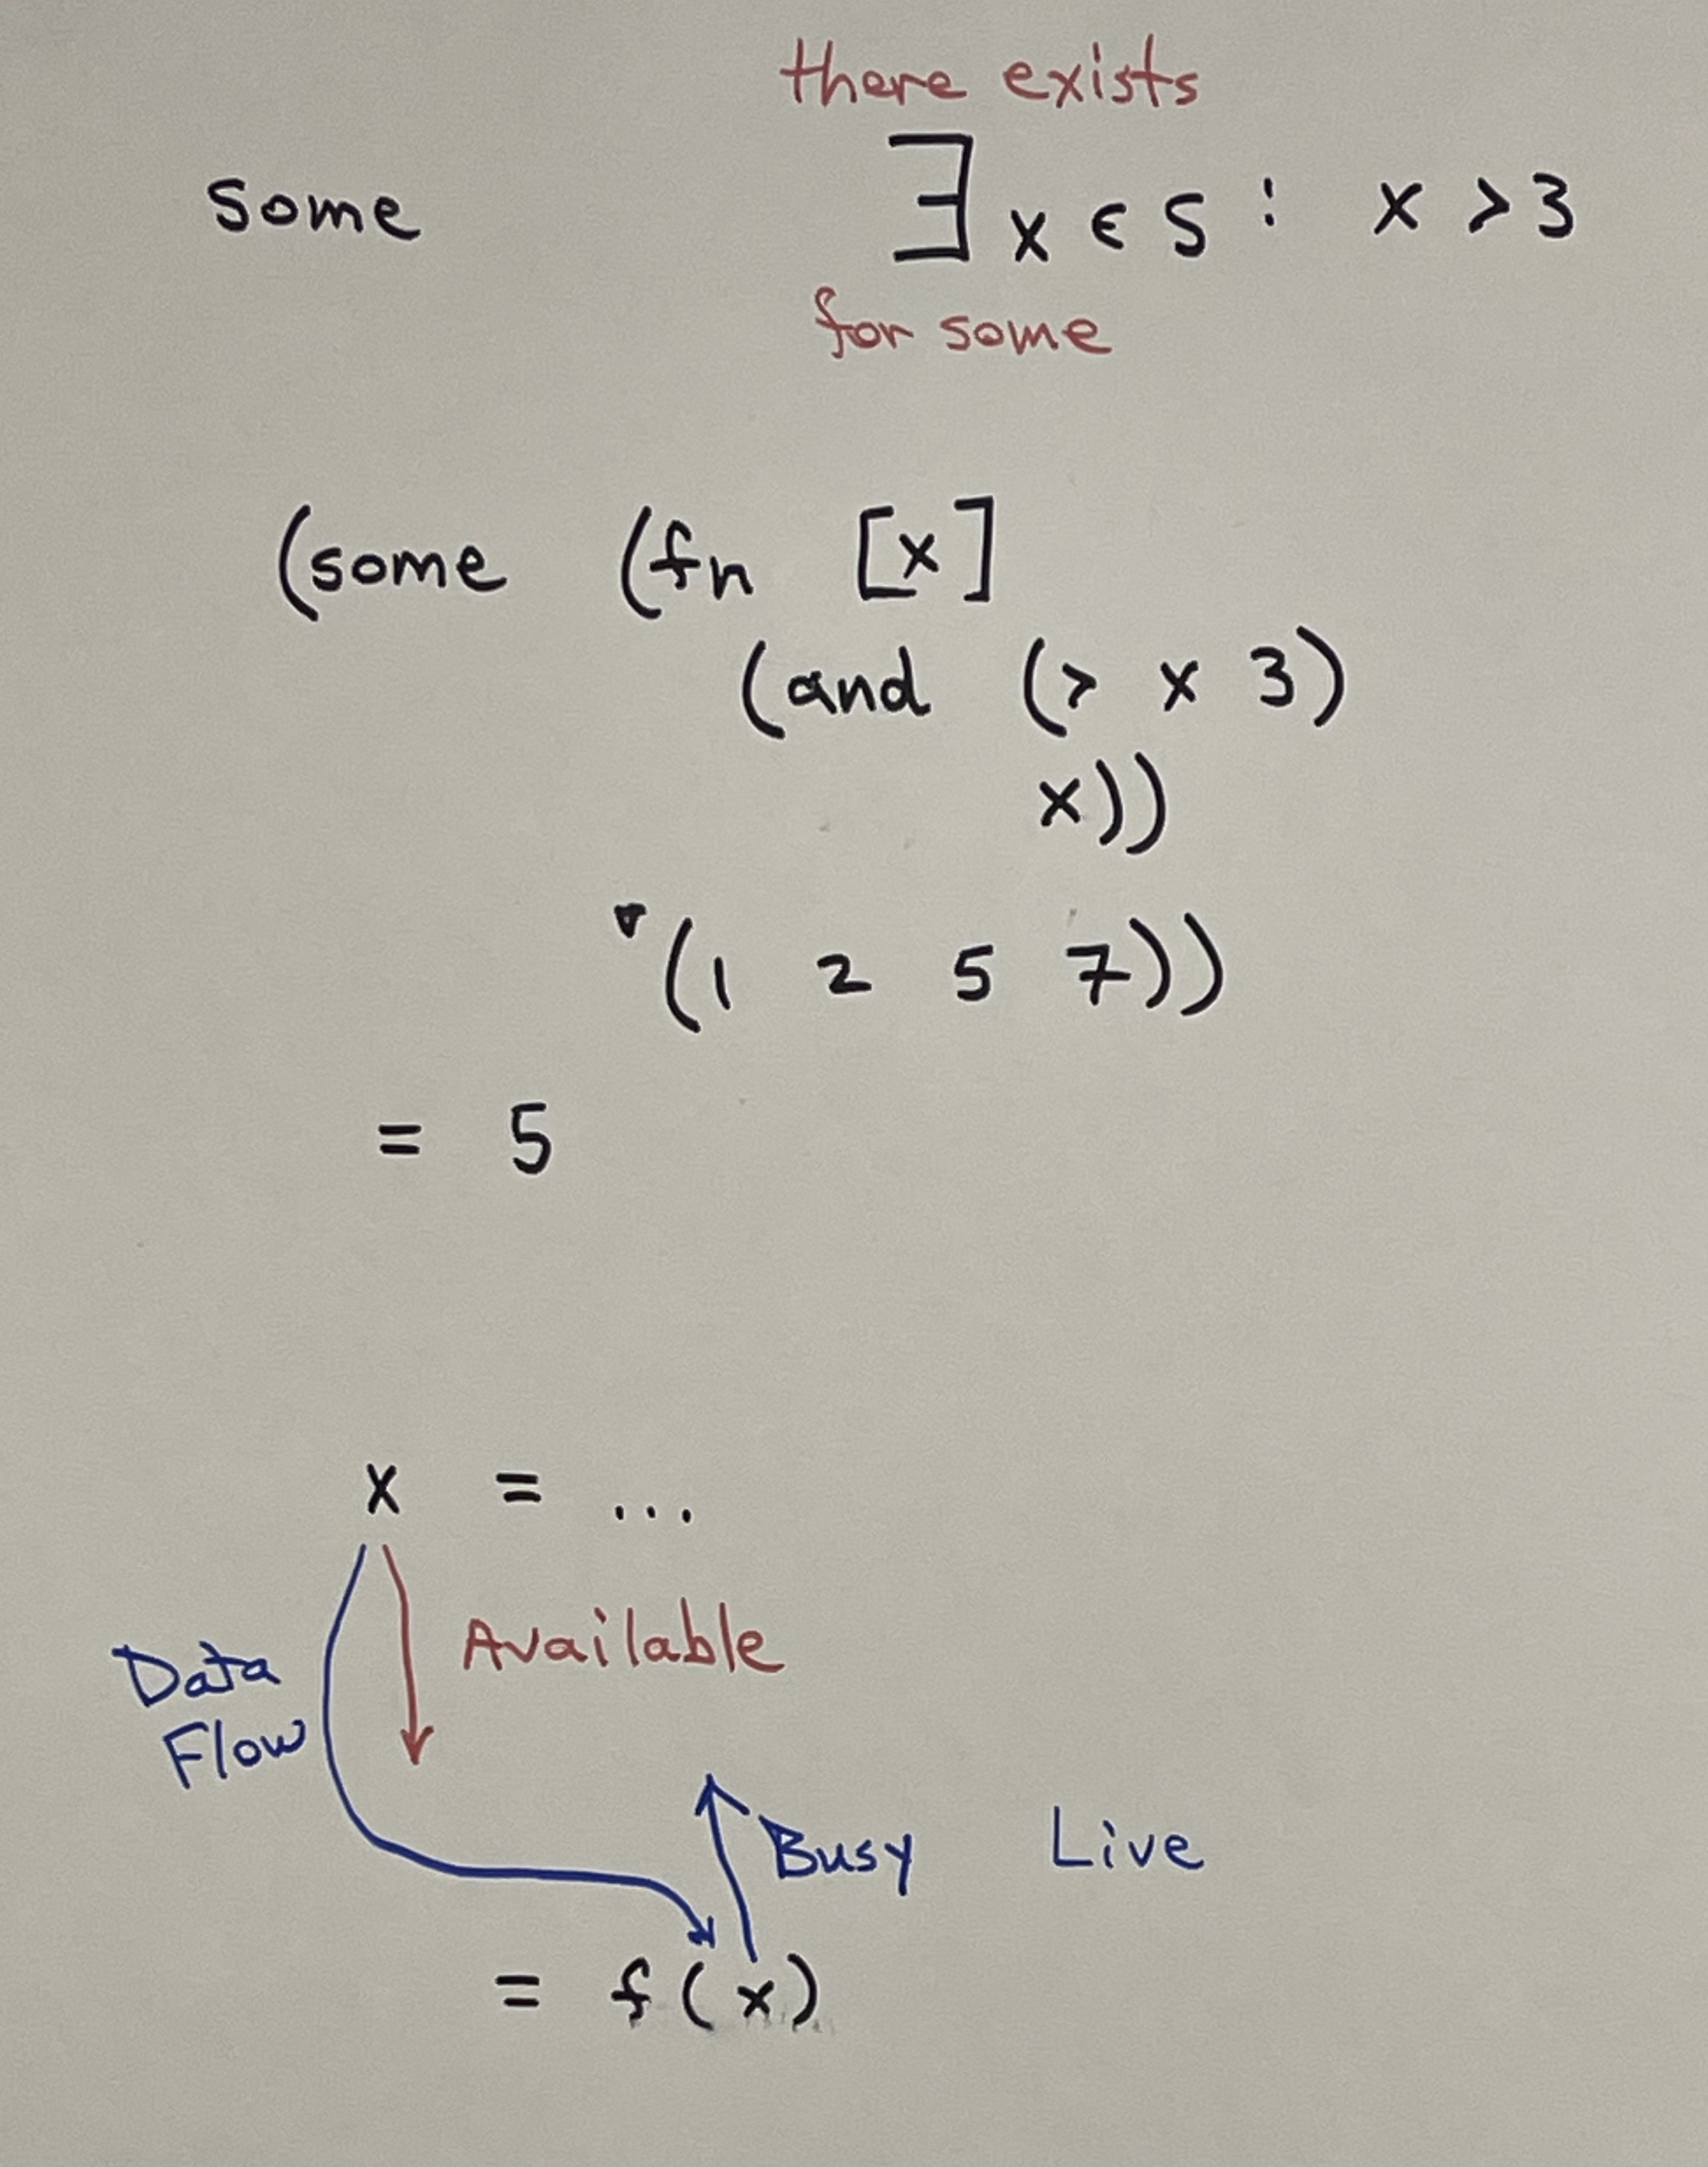 there exists
some ∃ x ∈ S : x > 3
for some
(some (fn [x]
(and (> x 3)
x))
'(1 2 5 7))
= 5
x = ...
Available
Data
Flow
Busy Live
= f(x)